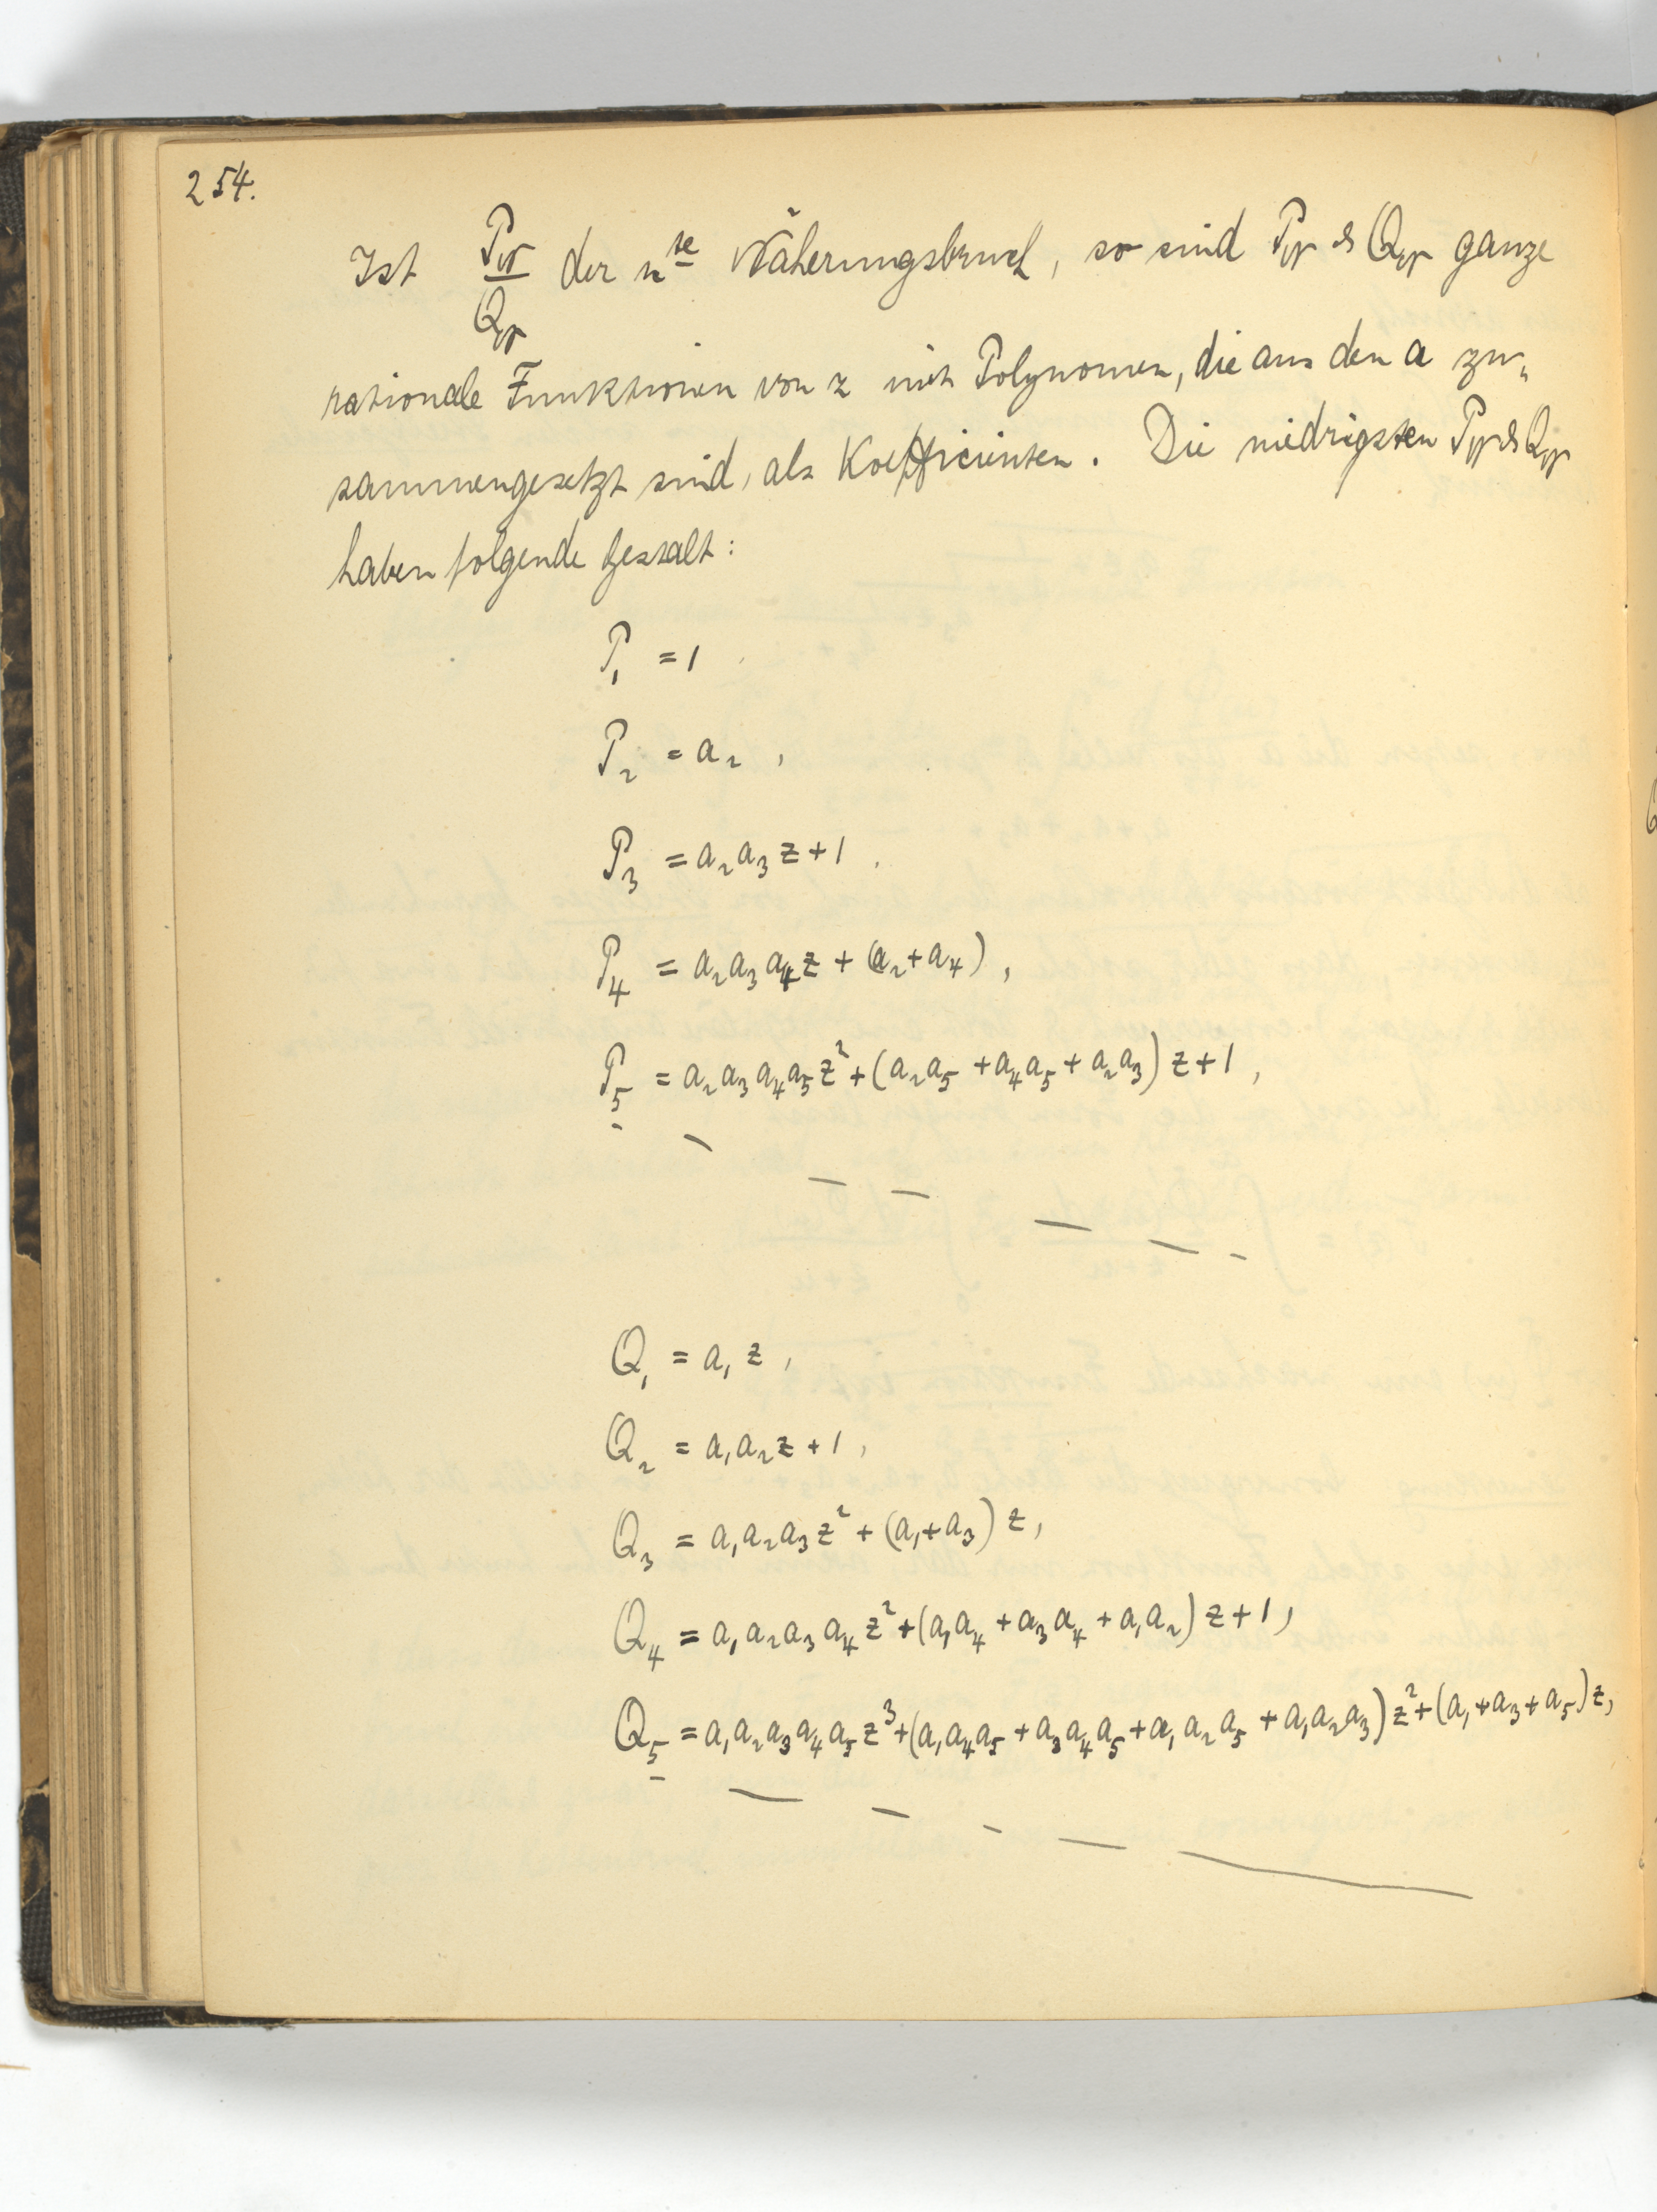 254.
Ist P_n/Q_n der n^te Näherungsbruch, so sind P_n & Q_n ganze
rationale Funktionen von z mit Polynomen, die aus den a zu„
sammengesetzt sind, als Koefficienten. Die niedrigsten P_n & Q_n
haben folgende Gestalt:
P₁ = 1
P₂ = a₂ ,
P₃ = a₂a₃z + 1 .
P₄ = a₂a₃a₄z + (a₂+a₄) ,
P₅ = a₂a₃a₄a₅z² + (a₂a₅ + a₄a₅ + a₂a₃) z + 1 ,
Q₁ = a₁z ,
Q₂ = a₁a₂z + 1 ,
Q₃ = a₁a₂a₃z² + (a₁+a₃) z ,
Q₄ = a₁a₂a₃a₄z² + (a₁a₄ + a₃a₄ + a₁a₂) z + 1 ,
Q₅ = a₁a₂a₃a₄a₅z³ + (a₁a₄a₅ + a₃a₄a₅ + a₁a₂a₅ + a₁a₂a₃) z² + (a₁+a₃+a₅) z ,